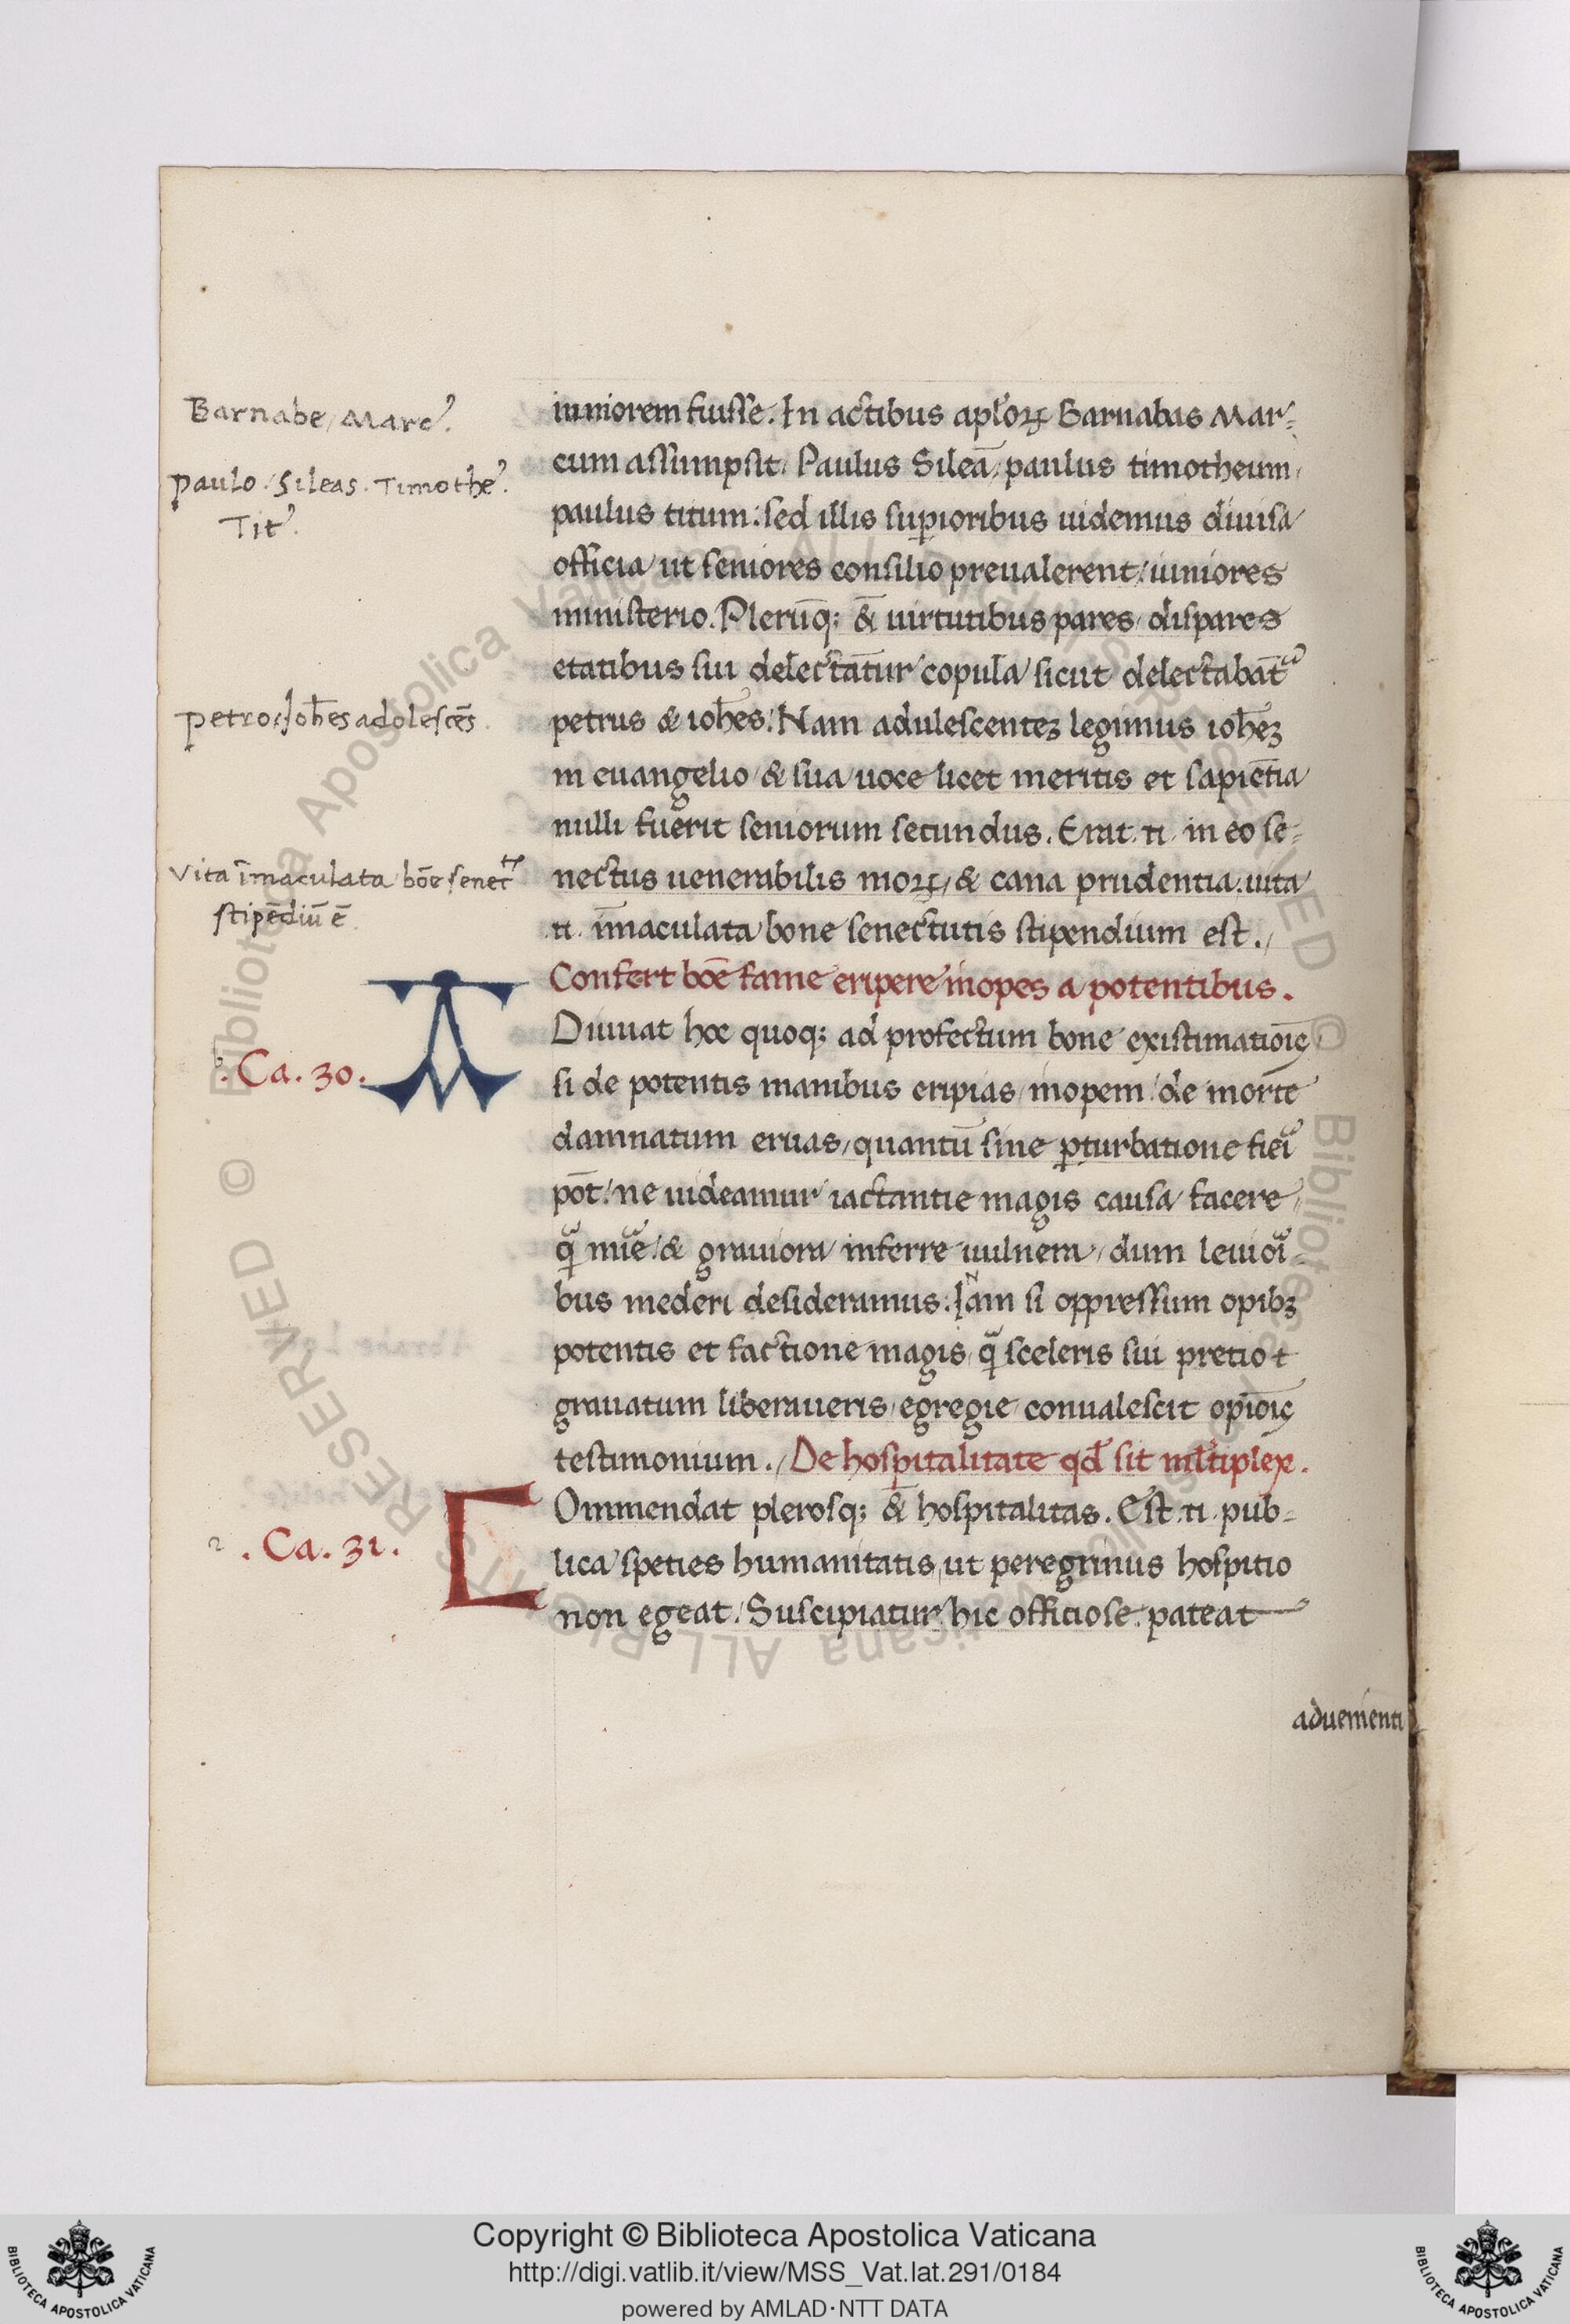 Barnabe / Marcꝰ.
Paulo / Sileas. Timotheꝰ.
Titꝰ.
petro & Joh̄es adolescēs
Vita īmaculata bōe senect
stipēdiū ē.
iuniorem fuisse. In actibus aplōꝝ Barnabas Mar-
cum assumpsit / Paulus Sileā / paulus timotheum /
paulus titum: sed illis suꝑioribus uidemus diuisa
officia / ut seniores consilio preualerent / iuniores
ministerio. Plerūq; & uirtutibus pares / dispares
etatibus sui delectantur copula / sicut delectabāt
petrus & ioh̄es. Nam adulescenteꝫ legimus ioh̄eꝫ
in euangelio / & sua uoce licet meritis et sapiētia
nulli fuerit seniorum secundus. Erat .n. in eo se-
nectus uenerabilis moꝝ / & cana prudentia. uita
.n. īmaculata bone senectutis stipendium est. /
Confert bōe fame eripere inopes a potentibus.
.Ca. 30.
A
Diuuat hoc quoq; ad profectum bone existimatiōis
si de potentis manibus eripias inopem / de morte
damnatum eruas / quantū sine ꝑturbatione fieri
pōt / ne uideamur iactantie magis causa facere /
q̄ mie / & grauiora inferre uulnera / dum leuiori-
bus mederi desideramus. Iam si oppressum opibꝫ
potentis et factione magis / q̄ sceleris sui pretio
grauatum liberaueris / egregie conualescit opiōis
testimonium. / De hospitalitate qđ sit mltiplex.
.Ca. 31.
C
Ommendat plerosq; & hospitalitas. Est .n. pub-
lica speties humanitatis / ut peregrinus hospitio
non egeat. Suscipiatur hic offitiose. pateat
aduenienti
© Biblioteca Apostolica Vaticana ALL RIGHTS RESERVED
Copyright © Biblioteca Apostolica Vaticana
http://digi.vatlib.it/view/MSS_Vat.lat.291/0184
powered by AMLAD·NTT DATA
BIBLIOTECA APOSTOLICA VATICANA
BIBLIOTECA APOSTOLICA VATICANA